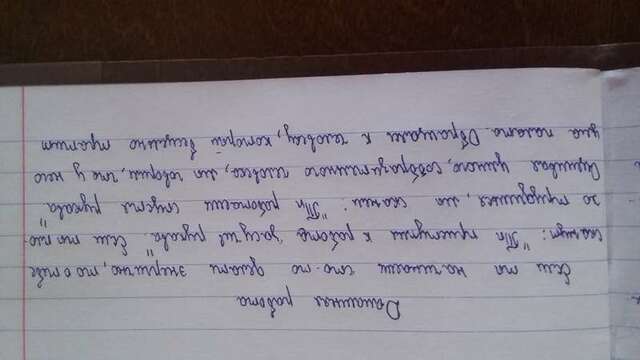 Домашняя работа
Если ты начинаешь что-то делать энергично, то о тебе
скажут: "Ты приступил к работе, засучив рукава". Если ты пло-
хо трудишься, мы скажем: "Ты работаешь спустя рукава"
Оценивая умного, сообразительного человека, мы говорим, что у него
ума палата. Обращаясь к человеку, который бесцельно тратит